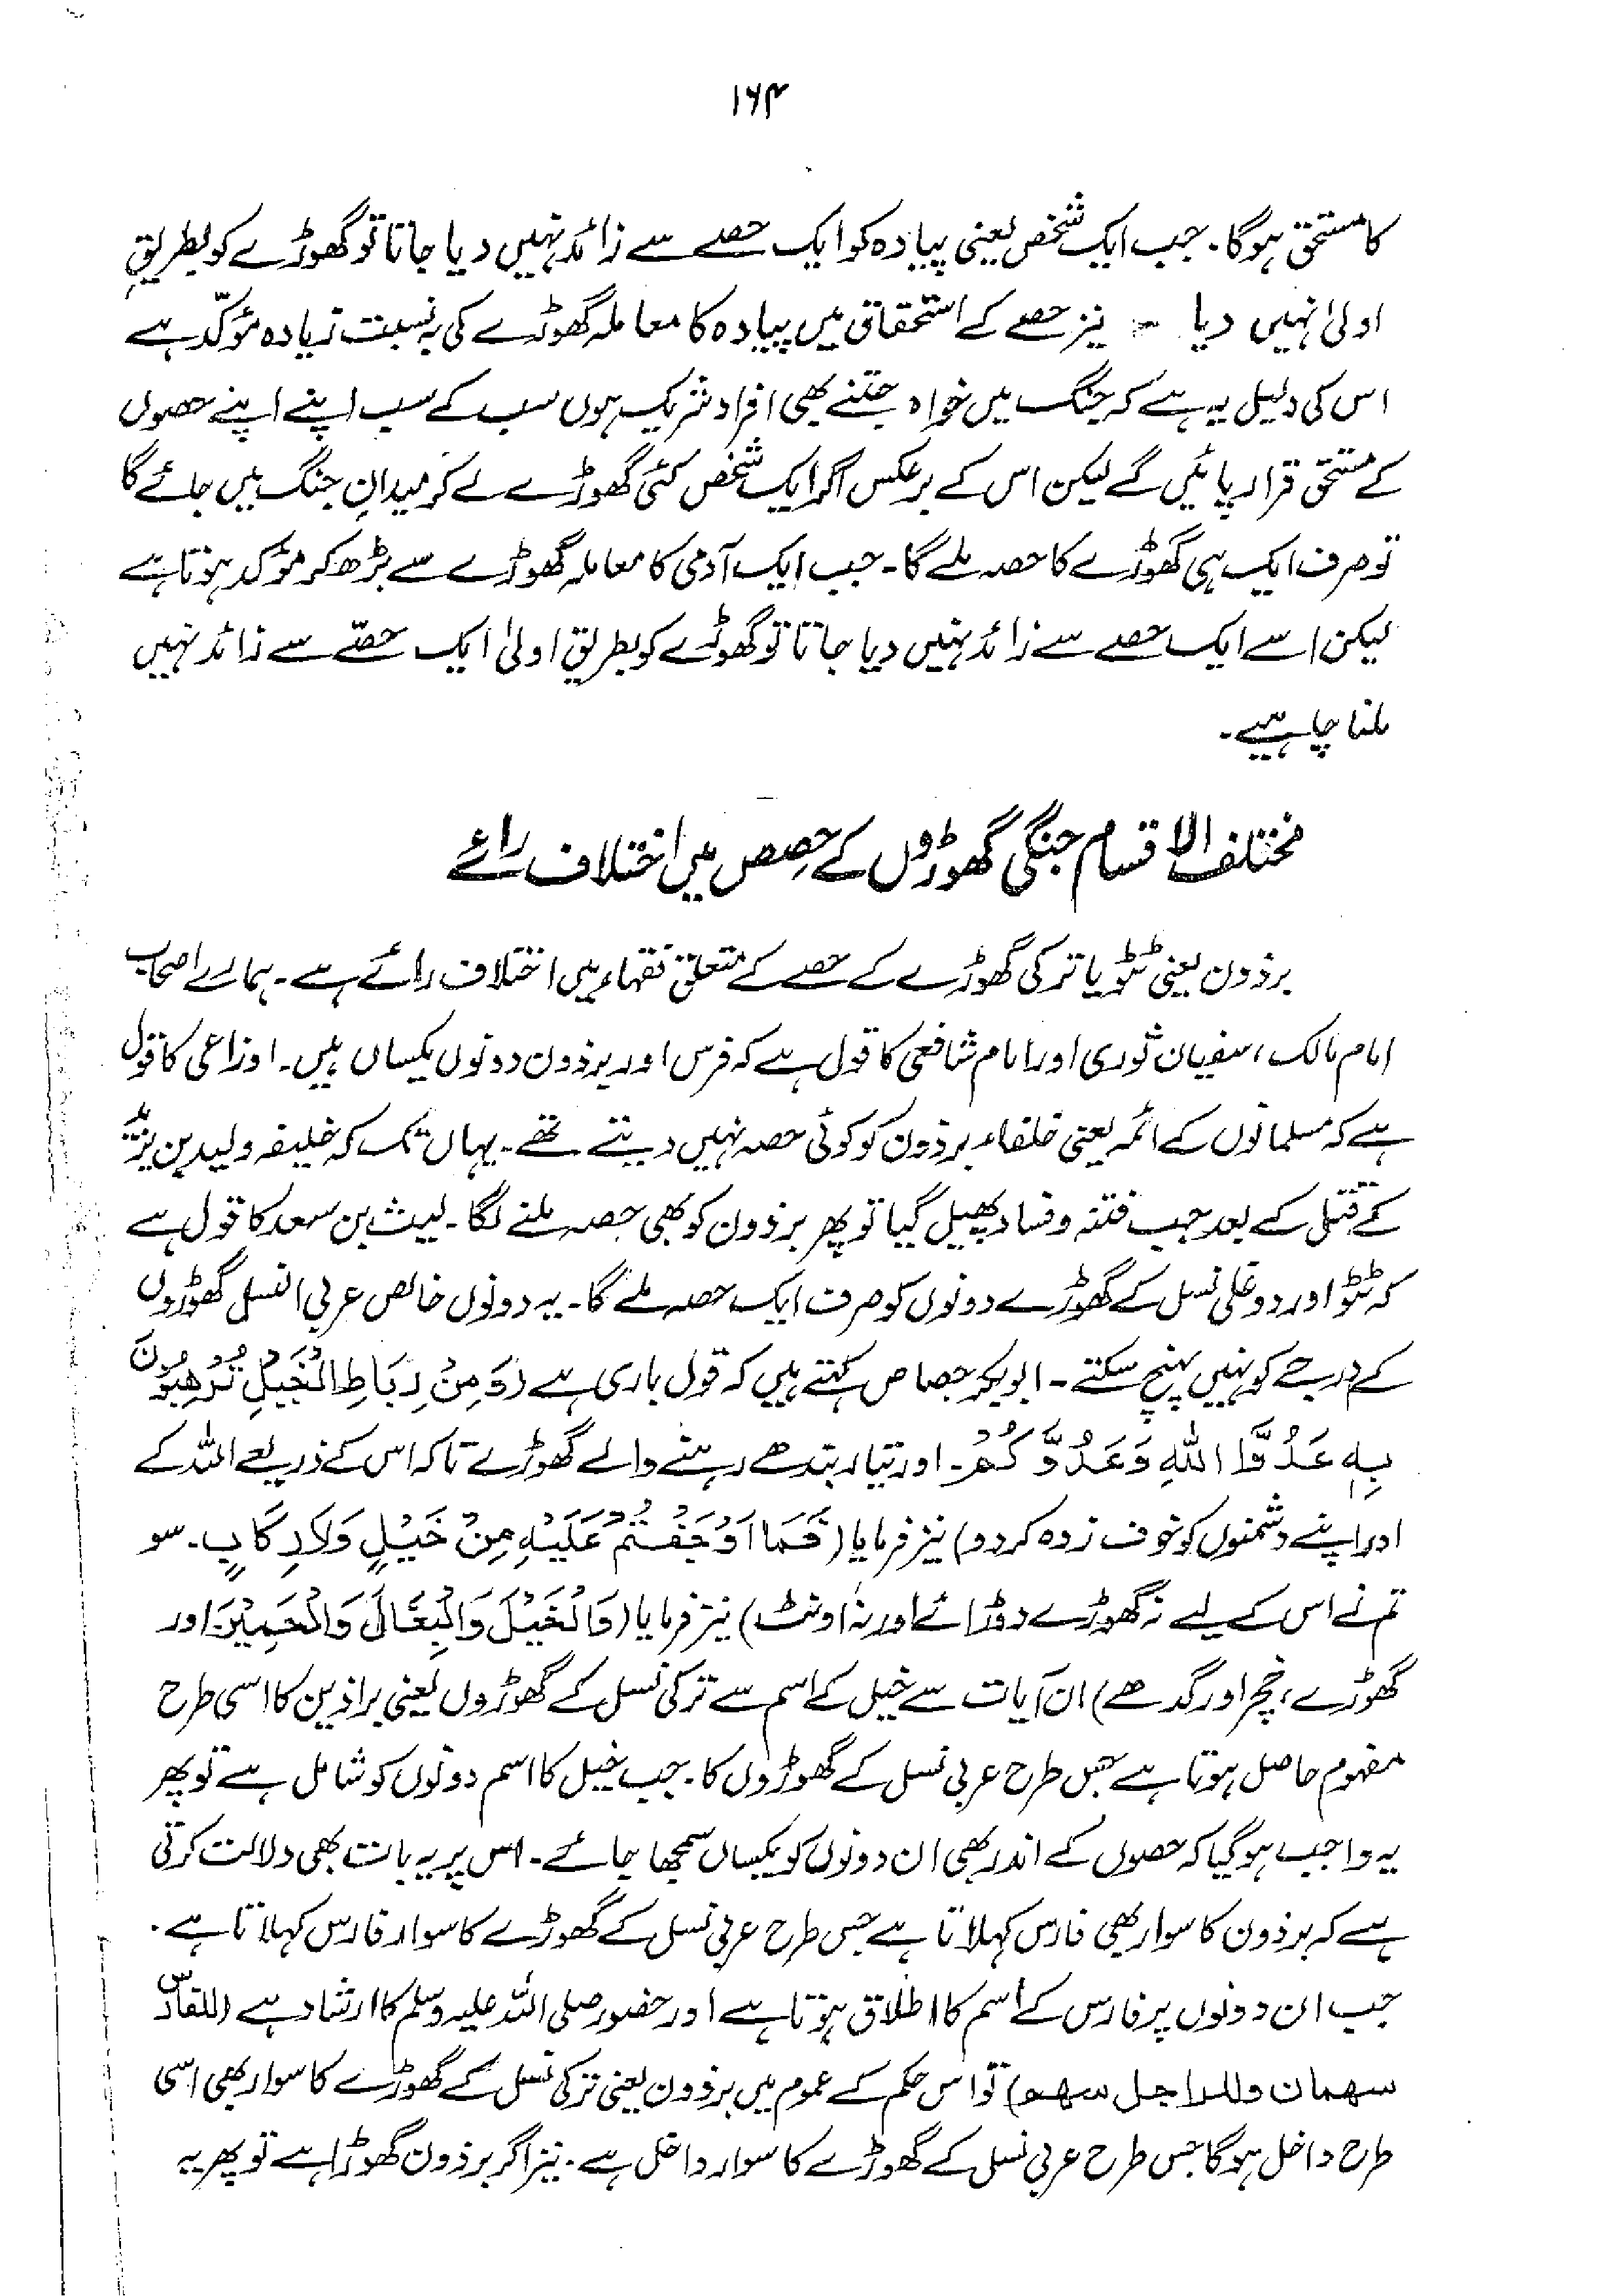 ۱۶۴
کا مستحق ہوگا۔ جب ایک شخص یعنی پیادہ کو ایک حصے سے زائد نہیں دیا جاتا تو گھوڑے کو بطریقِ
اولیٰ نہیں دیا نیز حصے کے استحقاق میں پیادہ کا معاملہ گھوڑے کی بہ نسبت زیادہ مؤکّد ہے
اس کی دلیل یہ ہے کہ جنگ میں خواہ جتنے بھی افراد شریک ہوں سب کے سب اپنے اپنے حصوں
کے مستحق قرار پائیں گے لیکن اس کے برعکس اگر ایک شخص کئی گھوڑے لے کر میدانِ جنگ میں جائے گا
تو صرف ایک ہی گھوڑے کا حصہ ملے گا۔ جب ایک آدمی کا معاملہ گھوڑے سے بڑھ کر مؤکد ہوتا ہے
لیکن اسے ایک حصے سے زائد نہیں دیا جاتا تو گھوڑے کو بطریق اولیٰ ایک حصّے سے زائد نہیں
ملنا چاہیے۔
مختلف الاقسام جنگی گھوڑوں کے حِصص میں اختلاف رائے
برذون یعنی ٹٹو یا ترکی گھوڑے کے حصے کے متعلق فقہاء میں اختلاف رائے ہے۔ ہمارے اصحاب
امام مالک، سفیان ثوری اور امام شافعی کا قول ہے کہ فرس اور برذون دونوں یکساں ہیں۔ اوزاعی کا قول
ہے کہ مسلمانوں کے ائمہ یعنی خلفاء برذون کو کوئی حصہ نہیں دیتے تھے۔ یہاں تک کہ خلیفہ ولید بن یزید
کے قتل کے بعد جب فتنہ و فساد پھیل گیا تو پھر برذون کو بھی حصہ ملنے لگا۔ لیث بن سعد کا قول ہے
کہ ٹٹو اور دوغلی نسل کے گھوڑے دونوں کو صرف ایک حصہ ملے گا۔ یہ دونوں خالص عربی النسل گھوڑوں
کے درجے کو نہیں پہنچ سکتے۔ ابوبکر جصاص کہتے ہیں کہ قول باری ہے (وَمِنْ رِبَاطِ الْخَيْلِ تُرْهِبُوْنَ
بِهٖ عَدُوَّ اللّٰهِ وَعَدُوَّكُمْ۔ اور تیار بندھے رہنے والے گھوڑے تاکہ اس کے ذریعے اللہ کے
اور اپنے دشمنوں کو خوف زدہ کردو) نیز فرمایا (فَمَا اَوْجَفْتُمْ عَلَيْهِ مِنْ خَيْلٍ وَلَا رِكَابٍ۔ سو
تم نے اس کے لیے نہ گھوڑے دوڑائے اور نہ اونٹ) نیز فرمایا (وَالْخَيْلَ وَالْبِغَالَ وَالْحَمِيْرَ اور
گھوڑے، خچر اور گدھے) ان آیات سے خیل کے اسم سے ترکی نسل کے گھوڑوں یعنی براذین کا اسی طرح
مفہوم حاصل ہوتا ہے جس طرح عربی نسل کے گھوڑوں کا۔ جب خیل کا اسم دونوں کو شامل ہے تو پھر
یہ واجب ہوگیا کہ حصوں کے اندر بھی ان دونوں کو یکساں سمجھا جائے۔ اس پر یہ بات بھی دلالت کرتی
ہے کہ برذون کا سوار بھی فارس کہلاتا ہے جس طرح عربی نسل کے گھوڑے کا سوار فارس کہلاتا ہے۔
جب ان دونوں پر فارس کے اسم کا اطلاق ہوتا ہے اور حضور صلی اللہ علیہ وسلم کا ارشاد ہے (للفارس
سهمان وللراجل سهم) تو اس حکم کے عموم میں برذون یعنی ترکی نسل کے گھوڑے کا سوار بھی اسی
طرح داخل ہوگا جس طرح عربی نسل کے گھوڑے کا سوار داخل ہے۔ نیز اگر برذون گھوڑا ہے تو پھر یہ